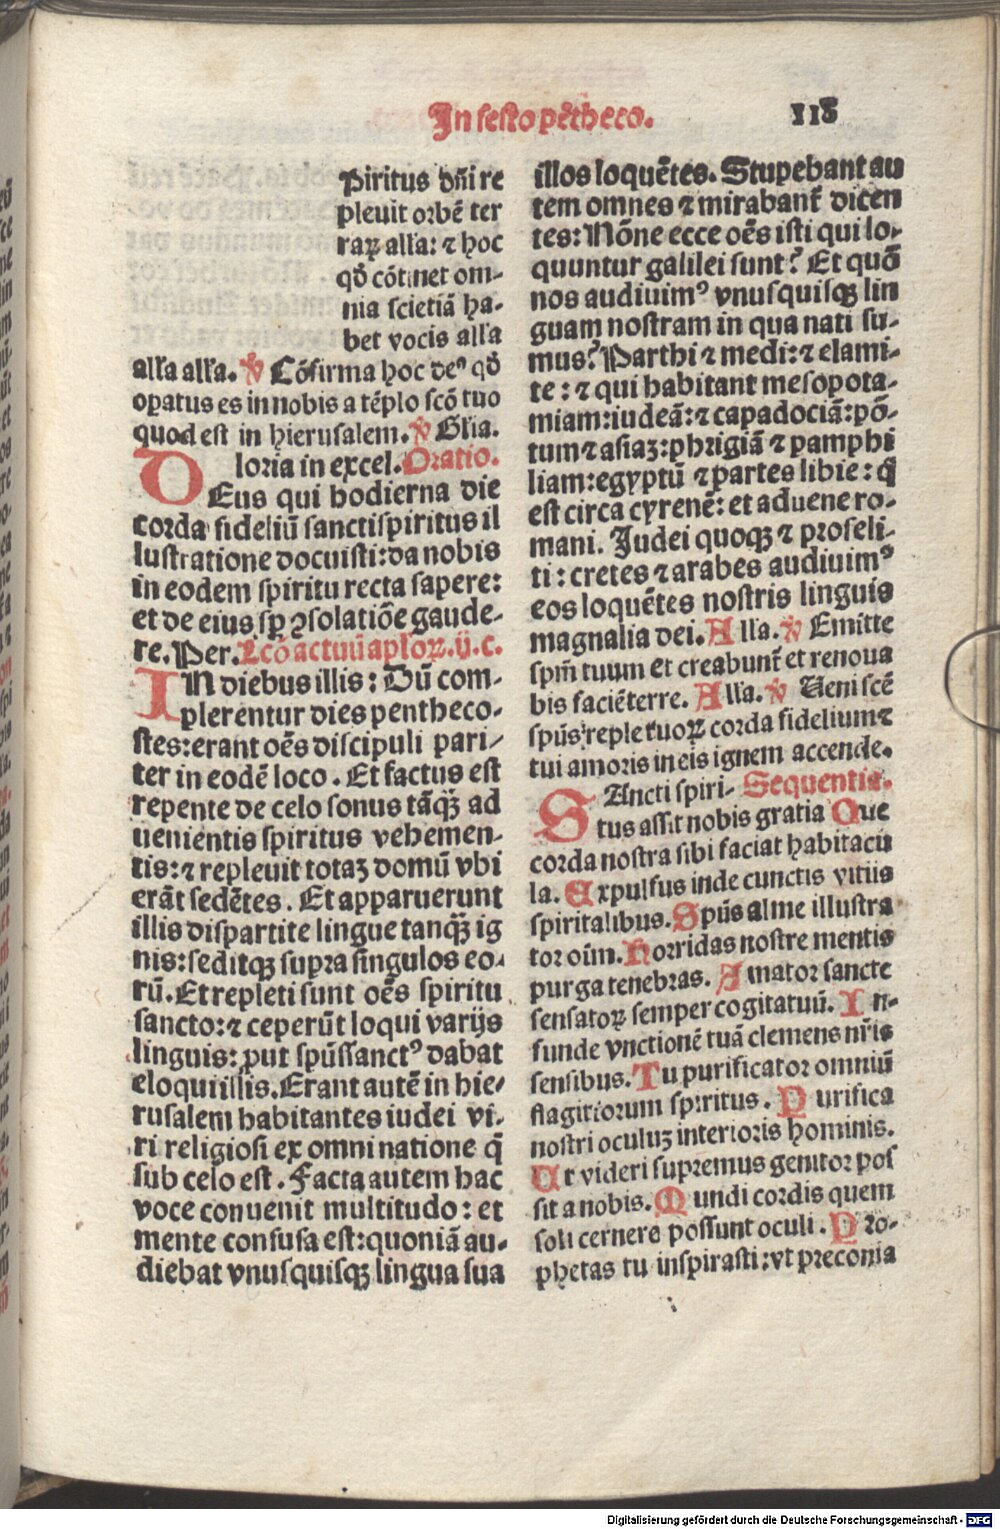 In festo pētheco.
118
Piritus dn̄i re
pleuit orbē ter
raꝝ all'a: ⁊ hoc
qð cōtinet om-
nia scietiā ha-
bet vocis all'a
all'a all'a. ℣ Cōfirma hoc deꝰ qð
opatus es in nobis a tēplo scō tuo
quod est in hierusalem. ℣ Glia.
loria in excel. Oratio.
DEus qui hodierna die
corda fideliū sanctispiritus il
lustratione docuisti: da nobis
in eodem spiritu recta sapere:
et de eius sp̄ ꝯsolatiōe gaude-
re. Per. Lcō actuū aploꝝ. ij. c.
IN diebus illis: Dū com-
plerentur dies pentheco-
stes: erant oēs discipuli pari-
ter in eodē loco. Et factus est
repente de celo sonus tāꝙ̄ ad
uenientis spiritus vehemen-
tis: ⁊ repleuit totaꝫ domū vbi
erāt sedētes. Et apparuerunt
illis dispartite lingue tanꝙ̄ ig
nis: seditqꝫ supra singulos eo-
rū. Et repleti sunt oēs spiritu
sancto: ⁊ ceperūt loqui varijs
linguis: ꝓut spūssanctꝰ dabat
eloqui illis. Erant autē in hie-
rusalem habitantes iudei vi-
ri religiosi ex omni natione q̄
sub celo est. Facta autem hac
voce conuenit multitudo: et
mente confusa est: quoniā au-
diebat vnusquisqꝫ lingua sua
illos loquētes. Stupebant au
tem omnes ⁊ mirabant̄ dicen
tes: Nōne ecce oēs isti qui lo-
quuntur galilei sunt? Et quō
nos audiuimꝰ vnusquisqꝫ lin
guam nostram in qua nati su-
mus? Parthi ⁊ medi: ⁊ elami-
te: ⁊ qui habitant mesopota-
miam: iudeā: ⁊ capadociā: pō-
tum ⁊ asiaꝫ: phrigiā ⁊ pamphi
liam: egyptū ⁊ partes libie: q̄
est circa cyrenē: et aduene ro-
mani. Judei quoqꝫ ⁊ proseli-
ti: cretes ⁊ arabes audiuimꝰ
eos loquētes nostris linguis
magnalia dei. Alla. ℣ Emitte
spm̄ tuum et creabunt̄ et renoua
bis faciē terre. Alla. ℣ Veni scē
spūs reple tuoꝝ corda fidelium ⁊
tui amoris in eis ignem accende.
SAncti spiri- Sequentia.
tus assit nobis gratia Que
corda nostra sibi faciat habitacu
la. Expulsus inde cunctis vitiis
spiritalibus. Spūs alme illustra
tor oīm. Horridas nostre mentis
purga tenebras. Amator sancte
sensatoꝝ semper cogitatuū. In-
funde vnctionē tuā clemens nr̄is
sensibus. Tu purificator omniū
flagitiorum spiritus. Purifica
nostri oculuꝫ interioris hominis.
Ut videri supremus genitor pos
sit a nobis. Mundi cordis quem
soli cernere possunt oculi. Pro-
phetas tu inspirasti: vt preconia
Digitalisierung gefördert durch die Deutsche Forschungsgemeinschaft - DFG